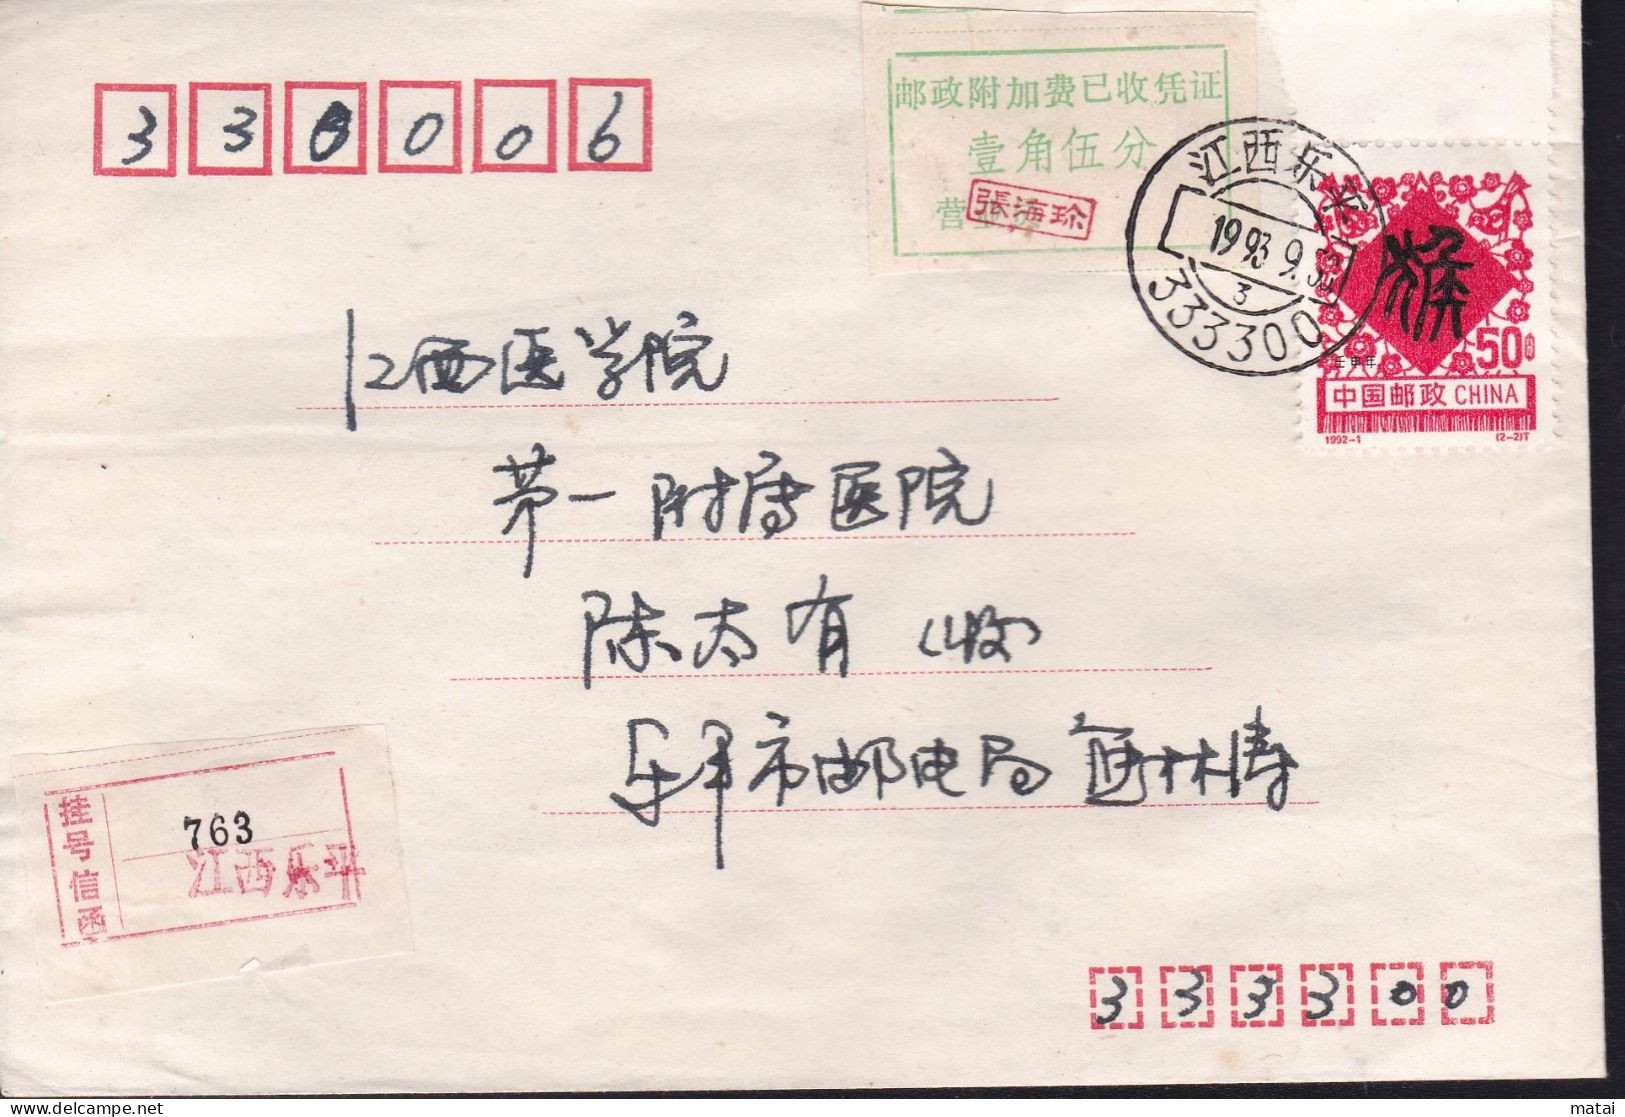 330006
邮政附加费已收凭证
壹角伍分
营业员
張海珍
江西乐平
1993.9.30
3
333300
猴
壬申年
50分
中国邮政 CHINA
1992-1
(2-2)T
江西医学院
第一附属医院
陈太有（收）
乐平市邮电局 林涛
挂号信函
763
江西乐平
333300
matai